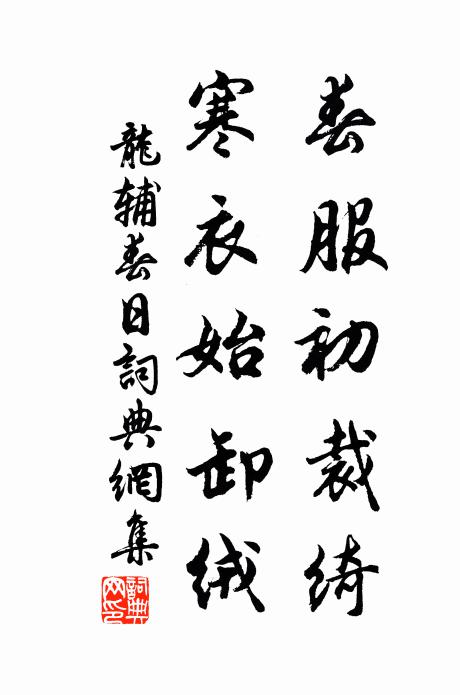 春服初裁綺
寒衣始卸絨
龍辅春日詞典網集
詞典网印